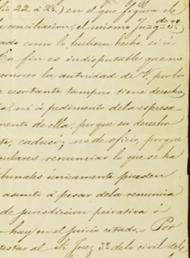 22 á 25.) en el que, fuera de
conciliacion, el mismo Juzgdo.
ado como lo hubiera hecho, si á
fin es indispensable que no
conocer la autoridad de V. pro
estante tampoco tiene derecho
ni á pedimento de la represen
mento de ella, porque su derecho
te, caducó; no de oficio, porque
culares renunciar lo que se ha
bunales únicamente pueden
asunto á pesar de la renuncia
de jurisdiccion privativa ó
hay en el juicio citado. Por
estar al Sr. Juez 3º de lo civil del